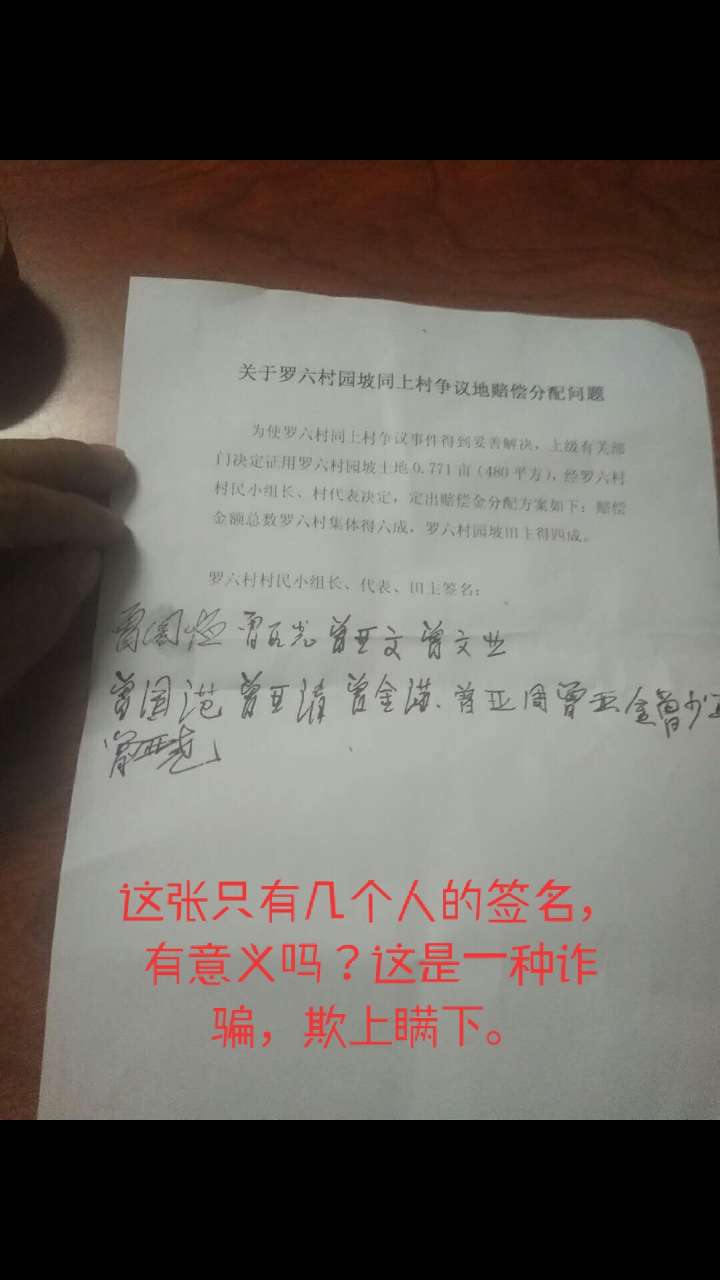 关于罗六村园坡同上村争议地赔偿分配问题
为使罗六村同上村争议事件得到妥善解决，上级有关部
门决定证用罗六村园坡土地0.771亩（480平方），经罗六村
村民小组长、村代表决定，定出赔偿金分配方案如下：赔偿
金额总数罗六村集体得六成，罗六村园坡田主得四成。
罗六村村民小组长、代表、田主签名：
曾亚文 曾文业
曾国范 曾亚清 曾金 曾亚周 曾亚金 曾少
曾亚
这张只有几个人的签名，
有意义吗？这是一种诈
骗，欺上瞒下。